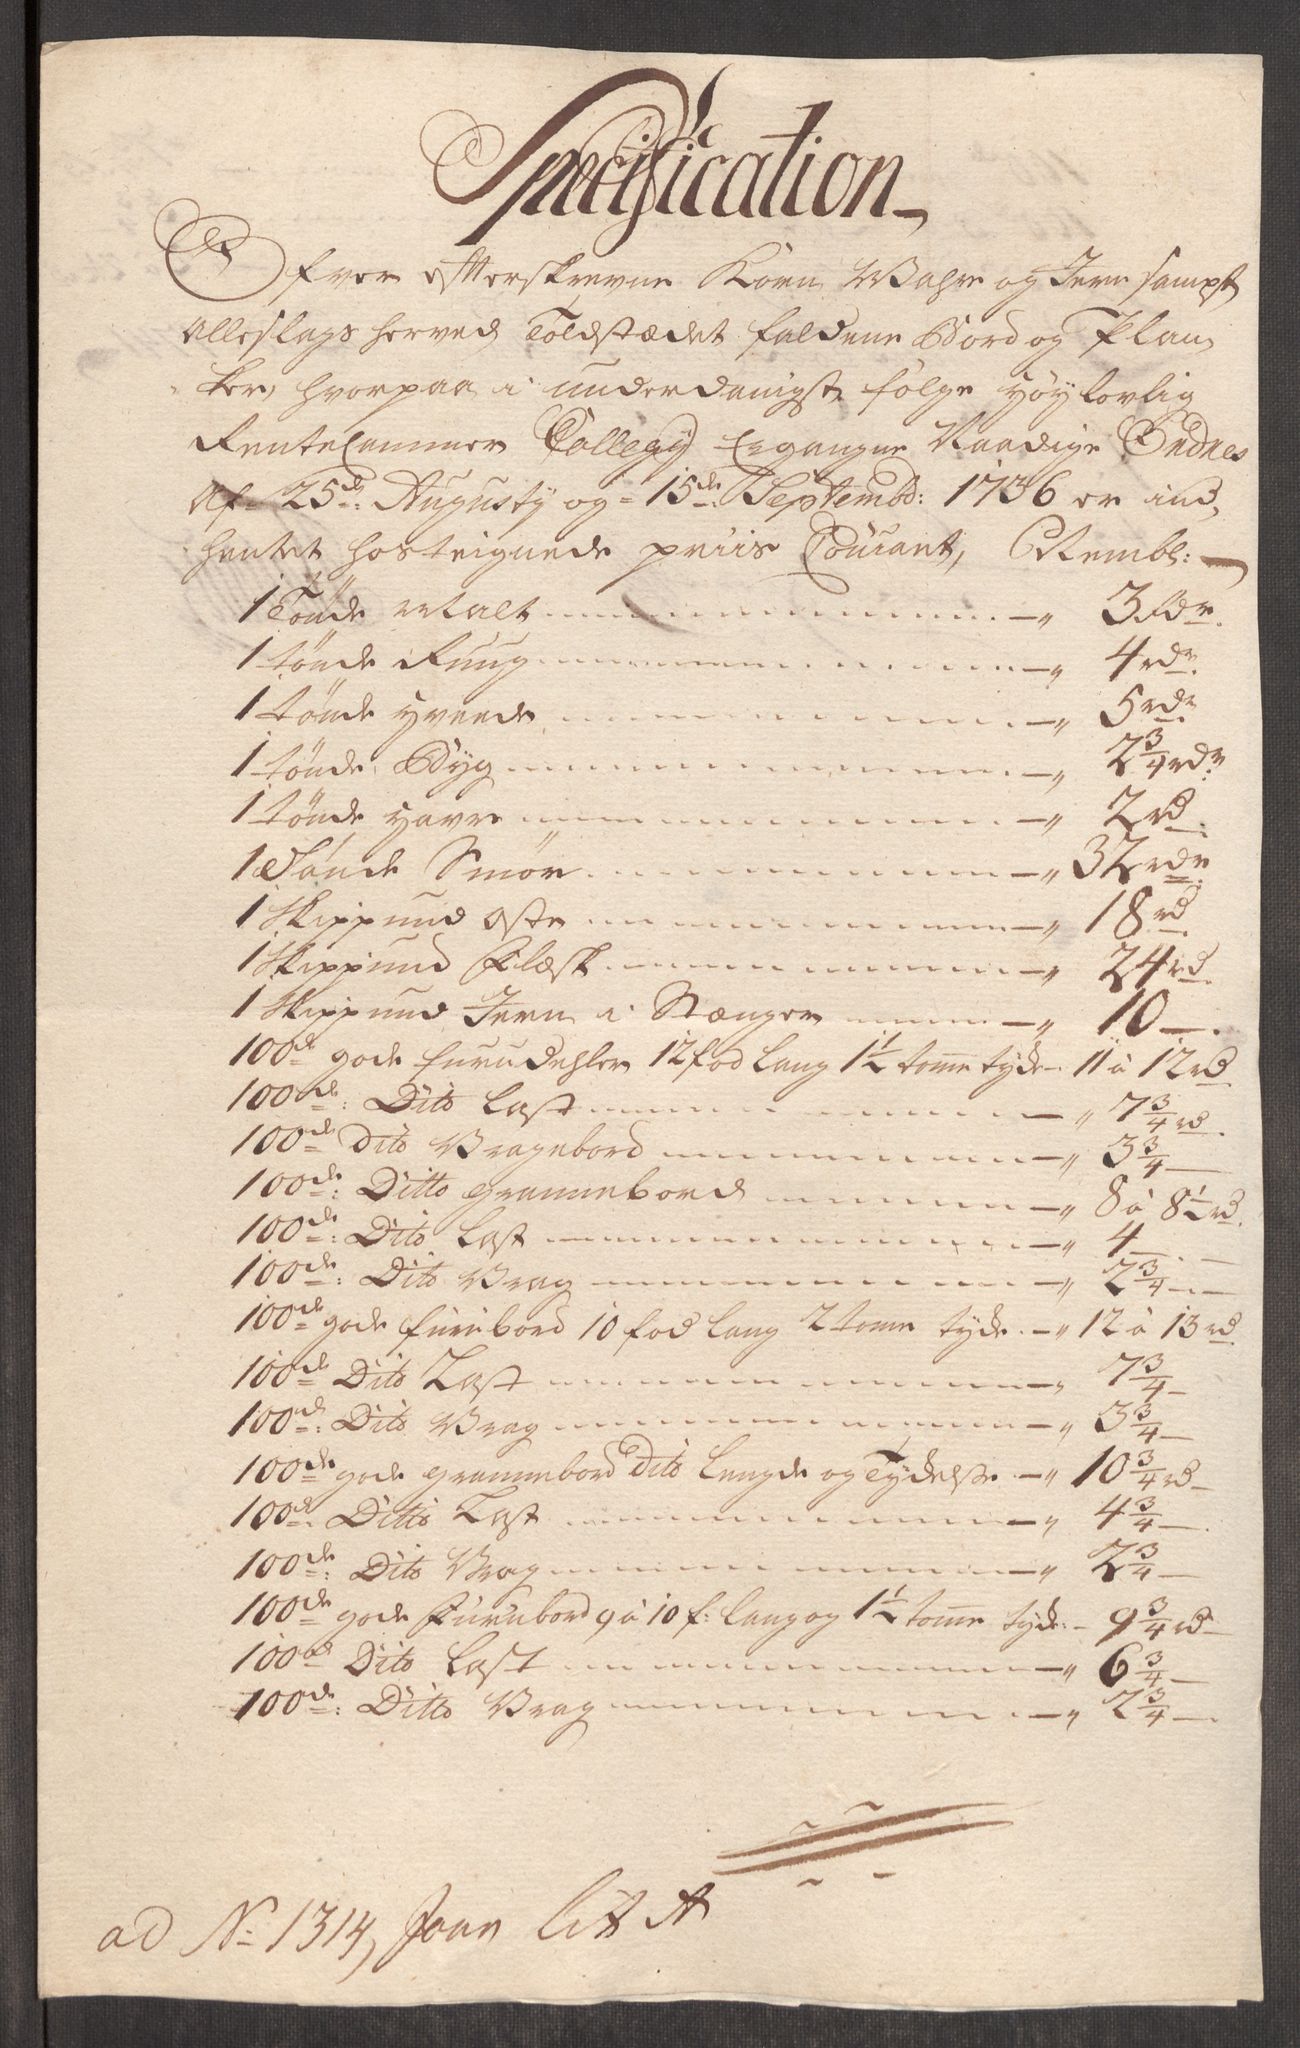 Specification
Ofver efterskrevne Korn Wahre og Jern sampt
Alleslags herved Toldstædet faldene Bord og Plan,
ker, hvorpaa i underdanigst følge høylovlig
RenteCammer Collegy Ergangne Naadige Ordres
Af 25de: Augusty og 15de: Septembr: 1736 er ind,
hentet hosteignede priis Courant, Nembl:
1 Tønde Malt 3 rdr.
1 tøndeRuug 4 rdr.
1 tønde hveede 5 rdr
1 tønde Byg 2 3/4 rdr.
1 tønde havre 2 rd.
1 Tønde Smør 32 rdr.
1 Skippund Oste 18 rd.
1 Skippund Flæsk 24 rd.
1 Skippund Jern i Stænger 10 —.
100de gode furudehler 12 fod lang 1 1/2 tomme tyde 11 á 12 rd.
100de: Dito Last 7 3/4 rd.
100de Dito Vragebord 3 3/4 —
100de: Ditto grannebord 8 á 8 1/2 rd.
100de: Dito Last 4 —
100de: Dito Vrag 2 3/4 —
100de gode furubord 10 fod lang 2 tome tyde 12 á 13 rd.
100de Dito Last 7 3/4 —
100de: Dito Vrag 3 3/4 —
100de gode grannebord Dito Lengde og Tydelse 10 3/4 rd
100de. Ditto Last 4 3/4 —
100de: Dito Vrag 2 3/4 —
100de gode Furubord 9 á 10 f: lang og 1 1/2 tomme tyde 9 3/4 rd
100de Dito Last 6 3/4 —
100de: Ditto Vrag 2 3/4 —
ad No 1314, Joan Lit A